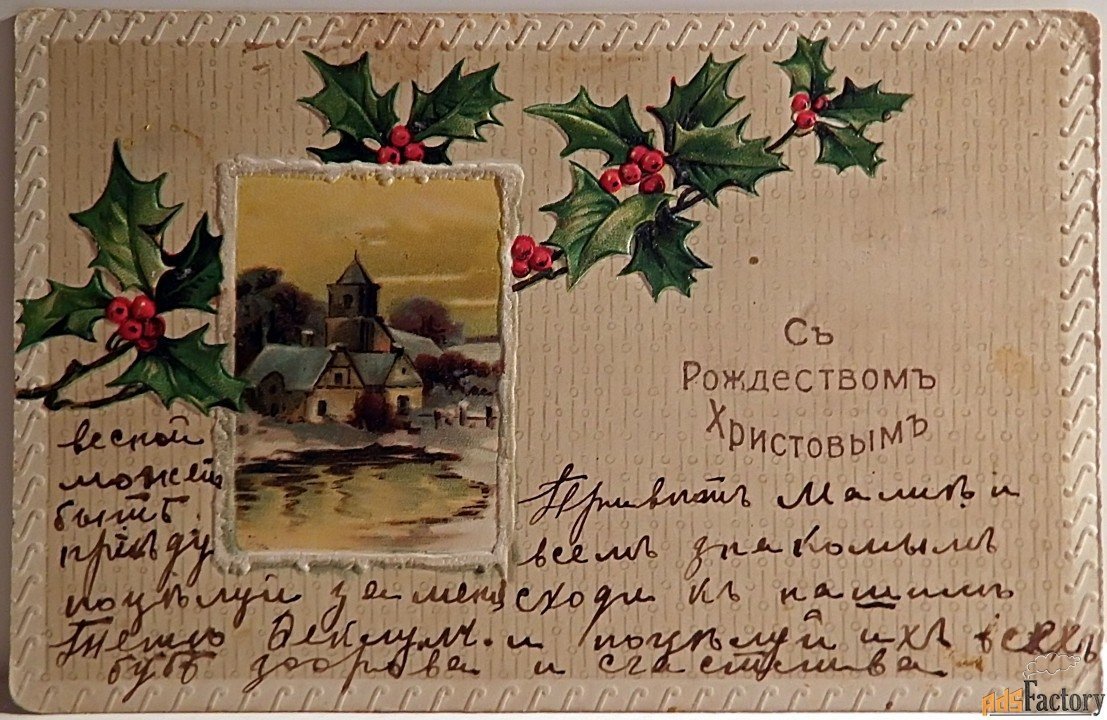 Съ
Рождествомъ
Христовымъ
весной
можетъ
быть
пріѣду
Привѣтъ Маликѣ и
всемъ знакомымъ
поцѣлуй за меня сходи къ нашимъ
и поцѣлуй ихъ всѣхъ
будь здорова и счастлива
AdsFactory